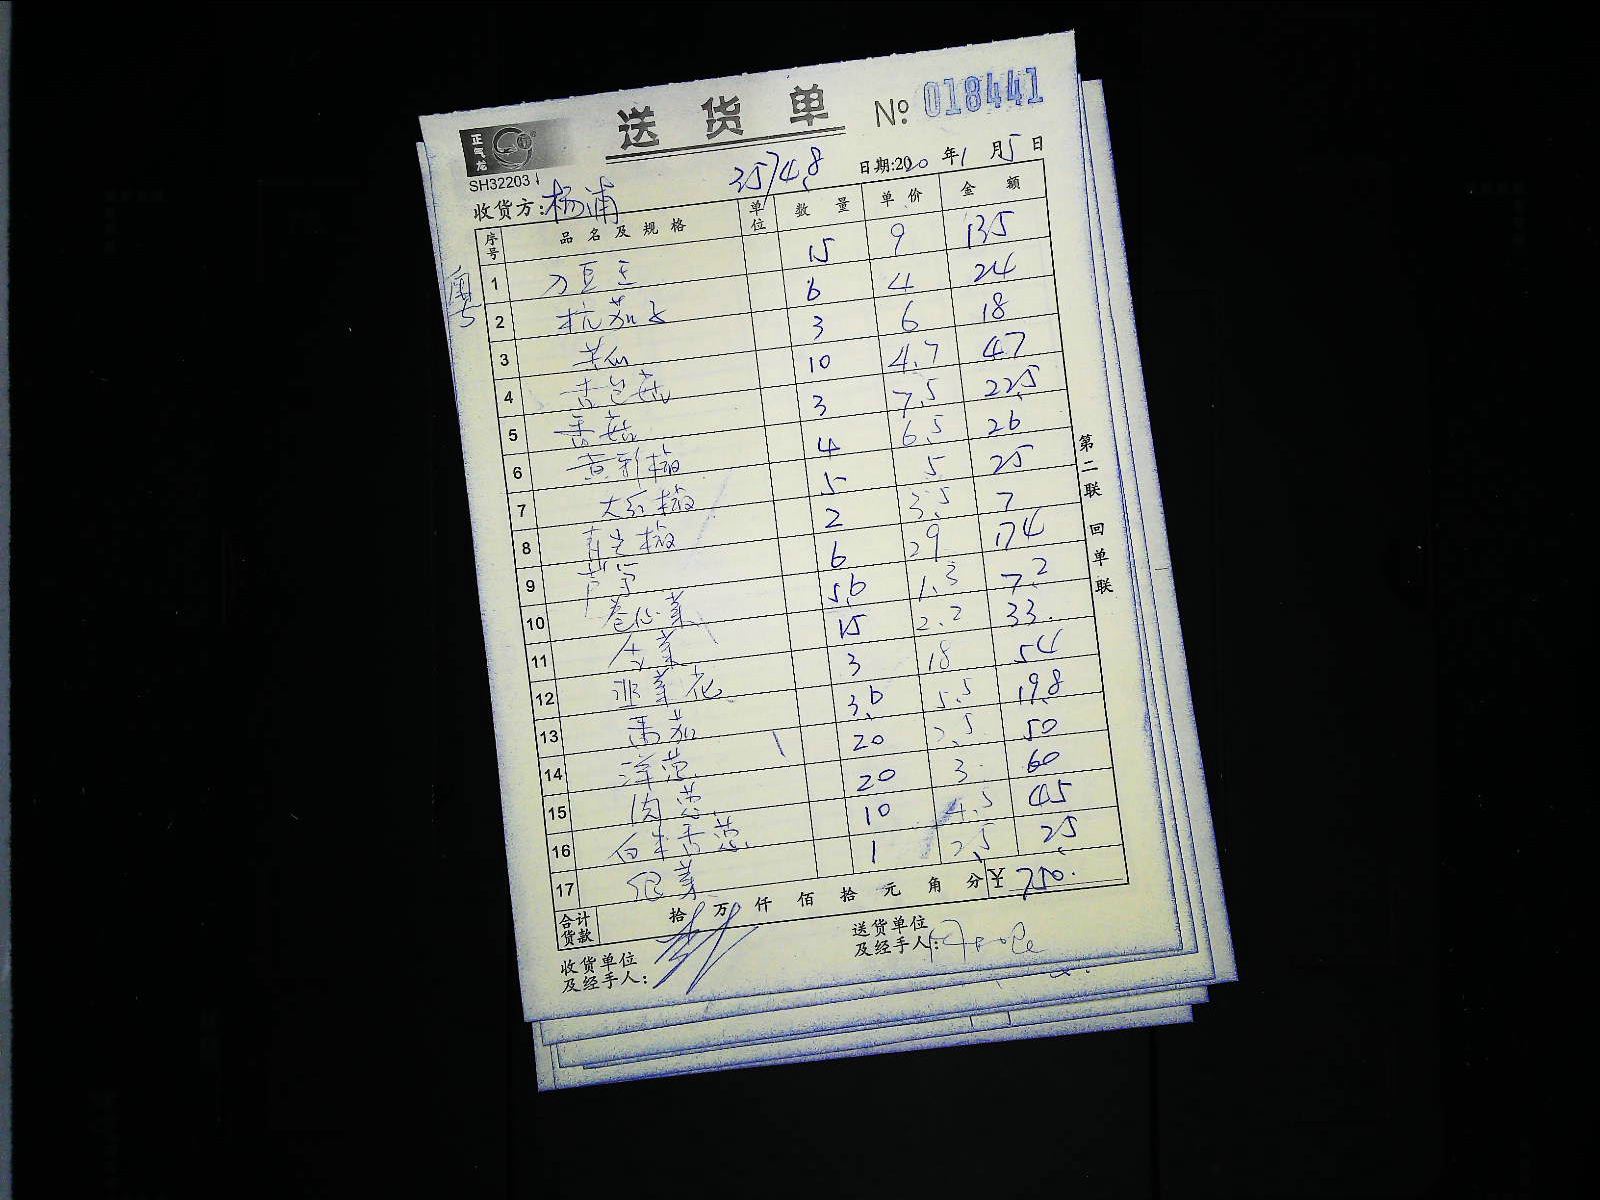 正气龙
送货单 № 018441
SH32203
3574.8 日期:2020年1月5日
收货方:杨浦
序号 品名及规格 单位 数量 单价 金额
1 刀豆王 15 9 135
2 杭茄子 6 4 24
3 3 6 18
4 杏包菇 10 4.7 47
5 香菇 3 7.5 22.5
6 黄彩椒 4 6.5 26
7 大红椒 5 5 25
8 青尖椒 2 3.5 7
9 芦笋 6 29 174
10 卷心菜 5.6 1.3 7.2
11 生菜 15 2.2 33
12 韭菜花 3 18 54
13 番茄 3.6 5.5 19.8
14 洋葱 20 2.5 50
15 肉葱 20 3 60
16 白米香葱 10 4.5 45
17 1 2.5 2.5
合计货款 拾万仟佰拾元角分 ¥ 750.
收货单位及经手人:
送货单位及经手人:
第二联 回单联